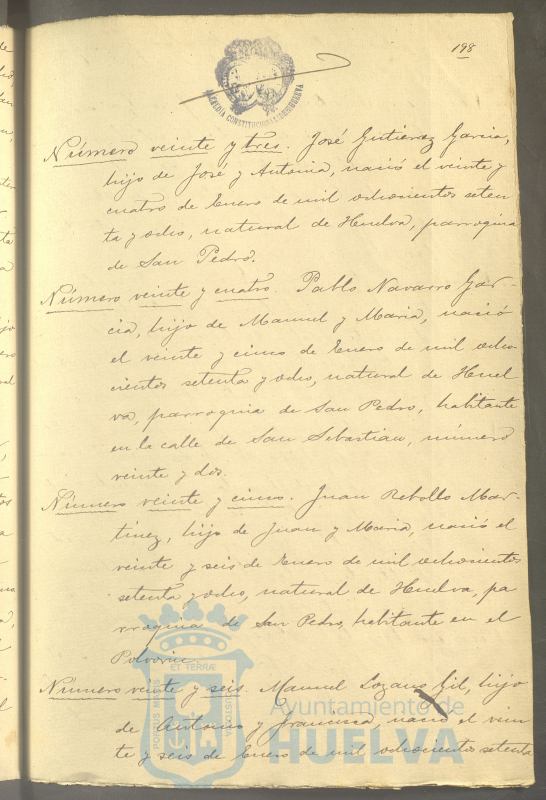 198
ALCALDIA CONSTITUCIONAL DE HUELVA
Número veinte y tres. José Gutierrez Garcia,
hijo de José y Antonia, nació el veinte y
cuatro de Enero de mil ochocientos seten
ta y ocho, natural de Huelva, parroquia
de San Pedro.
Número veinte y cuatro. Pablo Navarro Gar-
cia, hijo de Manuel y Maria, nació
el veinte y cinco de Enero de mil ocho
cientos setenta y ocho, natural de Huel
va, parroquia de San Pedro, habitante
en la calle de San Sebastian, número
veinte y dos.
Número veinte y cinco. Juan Rebollo Mar-
tinez, hijo de Juan y Maria, nació el
veinte y seis de Enero de mil ochocientos
setenta y ocho, natural de Huelva, pa
rroquia de San Pedro, habitante en el
Polvorin.
Número veinte y seis. Manuel Lozano Gil, hijo
de Antonio y Francisca, nació el vein
te y seis de Enero de mil ochocientos setenta
PORTUS MARIS
ET TERRÆ
CUSTODIA
Ayuntamiento de
HUELVA